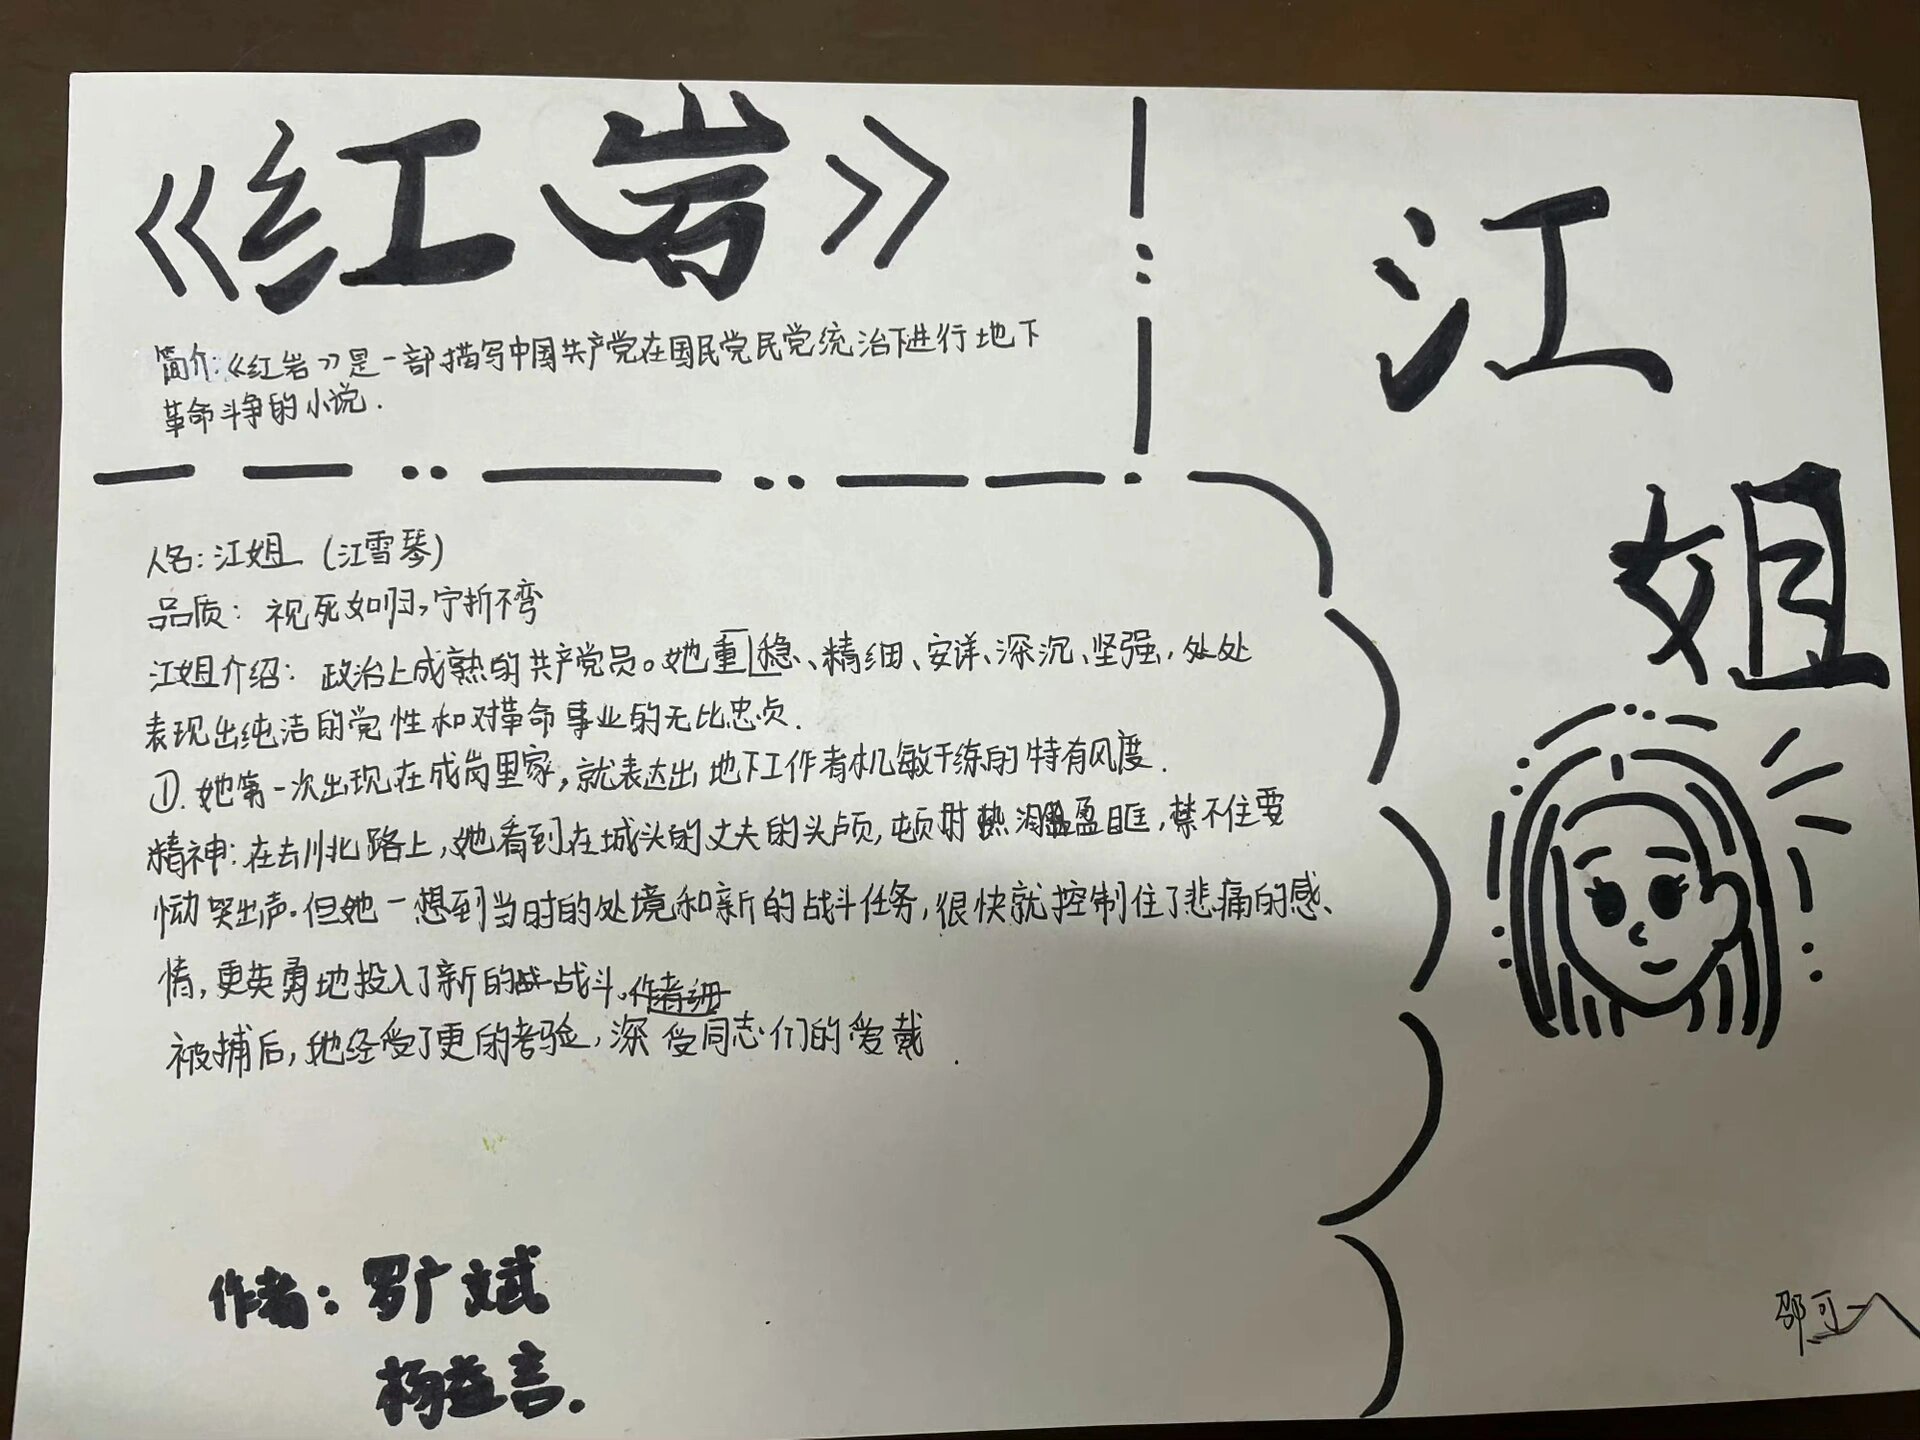 《红岩》
简介:《红岩》是一部描写中国共产党在国民党民党统治下进行地下
革命斗争的小说.
江
姐
人名:江姐(江雪琴)
品质:视死如归,宁折不弯
江姐介绍:政治上成熟的共产党员。她重稳、精细、安详、深沉、坚强,处处
表现出纯洁的党性和对革命事业的无比忠贞.
①.她第一次出现在成岗里家,就表达出地下工作者机敏干练的特有风度.
精神:在去川北路上,她看到在城头的丈夫的头颅,顿时热泪盈眶,禁不住要
恸哭出声。但她一想到当时的处境和新的战斗任务,很快就控制住了悲痛的感、
情,更英勇地投入了新的战斗。
被捕后,她经受了更的考验,深受同志们的爱戴.
作者:罗广斌
杨益言.
邵可一